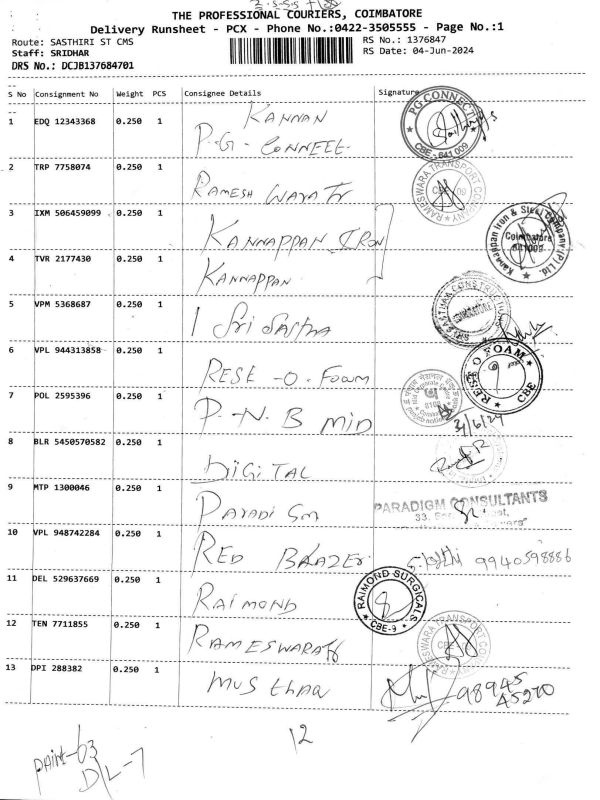 THE PROFESSIONAL COURIERS, COIMBATORE
Delivery Runsheet - PCX - Phone No.:0422-3505555 - Page No.:1
Route: SASTHIRI ST CMS
RS No.: 1376847
Staff: SRIDHAR
RS Date: 04-Jun-2024
DRS No.: DCJB137684701
S No Consignment No Weight PCS Consignee Details Signature
1 EDQ 12343368 0.250 1 KANNAN
P.G. CONNEET
PG CONNECT
CBE - 641 009
2 TRP 7758074 0.250 1 RAMESH
RAMESWARA TRANSPORT COMPANY
3 IXM 506459099 0.250 1 KANNAPPAN IRON
Kannappan Iron & Steel Company (P) Ltd.
Coimbatore
641009
4 TVR 2177430 0.250 1 KANNAPPAN
5 VPM 5368687 0.250 1 Sri Sastha
6 VPL 944313858 0.250 1 REST -O- Foam
REST O FOAM
CBE
7 POL 2595396 0.250 1 P.N.B MID
8 BLR 5450570582 0.250 1 DIGITAL
9 MTP 1300046 0.250 1 PARADI Sm
PARADIGM CONSULTANTS
10 VPL 948742284 0.250 1 RED BLAZER 9940598886
11 DEL 529637669 0.250 1 RAIMOND
RAIMOND SURGICALS
CBE-9
12 TEN 7711855 0.250 1 RAMESWARA
13 DPI 288382 0.250 1 MUSthaa
98945
45200
12
D/L-7